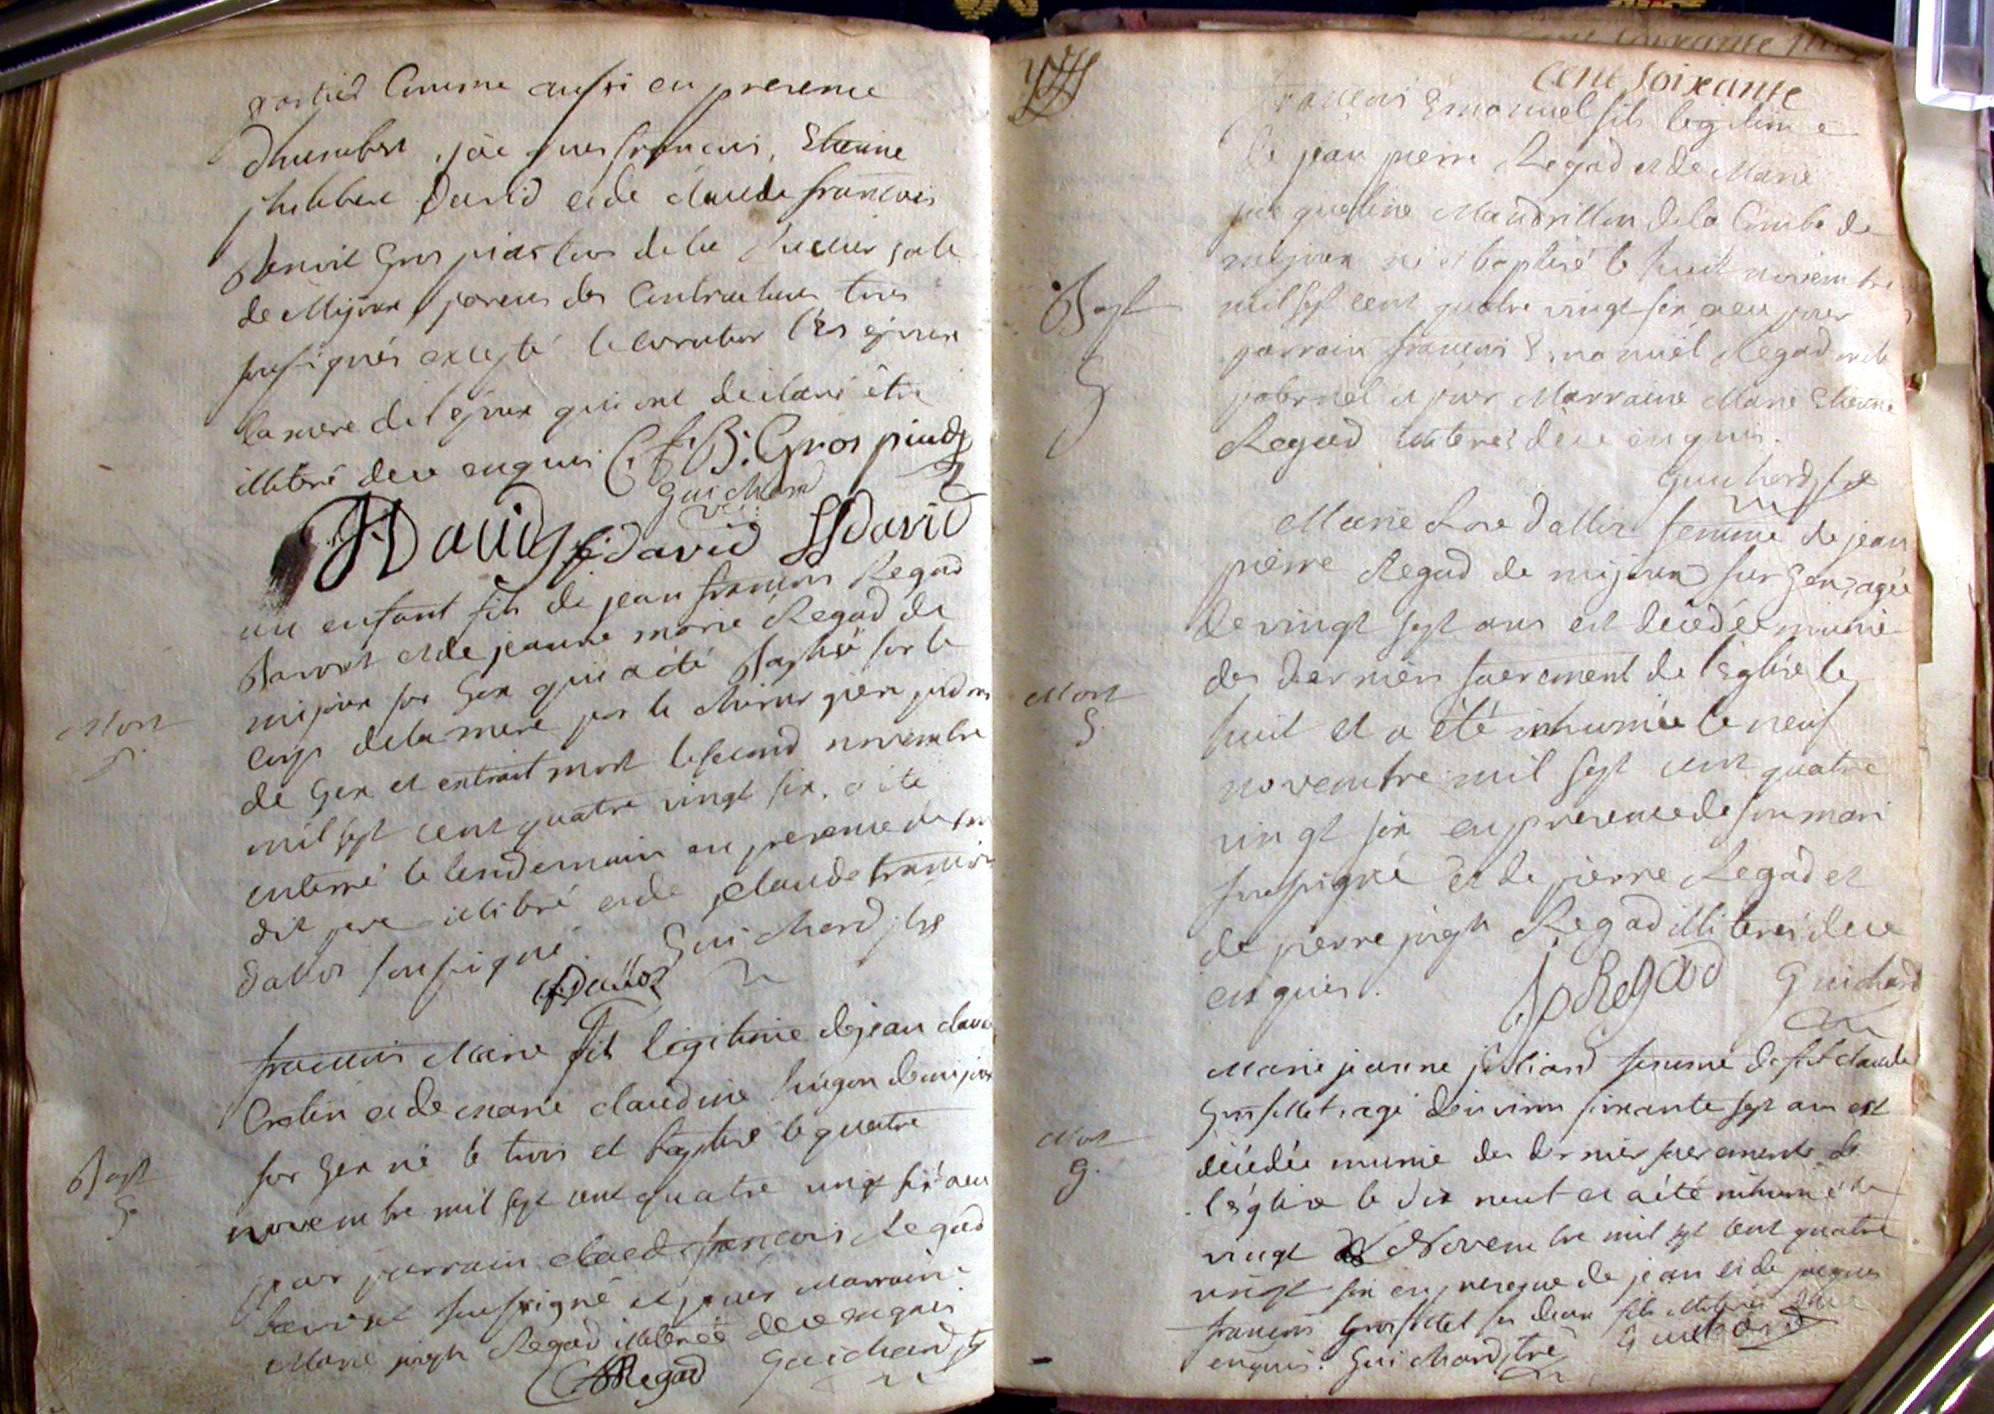 parties Comme aussi en presence
d'humbert, jacques françois, Etienne
philibert David et de claude françois
Benoit Gros piastres de la
de Mijoux parens des Contractans tous
soussignés excepté le curateur l'es epoux
la mere de l'epoux qui ont déclaré être
illiteré de ce enquis C. f. B: Gros
Guichard
David f David David
un enfant fils de jean françois Regad
Benoit et de jeanne marie Regad de
mijoux sur Gex qui a été Baptisé sur le
Corps de la mere par le chirurgien
de Gex et entrait mort le second novembre
mil sept cent quatre vingt six, a été
enterré le lendemain en presence de son
dit pere illitéré et de claude françois
Dalloz soussigné Guichard ptre
Mort
G.
Dalloz
françois Marie fils légitime de jean claude
Crestin et de marie claudine hugon de mijoux
sur Gex né le trois et baptisé le quatre
novembre mil sept cent quatre vingt six a eu
Bapt
G.
pour parrain claude françois Regad
benoit soussigné et pour Marraine
Marie joseph Regad illiterée de ce enquis
Regad Guichard ptre
Cent soixante
françois Emanuel fils legitime
de jean pierre Regad et de Marie
jacqueline Mandrillon de la Combe de
mijoux né et baptisé le huit novembre
mil sept cent quatre vingt six a eu pour
parrain françois Emanuel Regad
et pour Marraine Marie Etienne
Regad illiterés de ce enquis.
Bapt
G
Guichard ptre
Marie Dalloz femme de jean
pierre Regad de mijoux sur Gex, agée
de vingt sept ans est décédée munie
des derniers sacrement de l'Eglise le
huit et a été inhumée le neuf
novembre mil sept cent quatre
vingt six en presence de son mari
soussigné et de pierre Regad et
de pierre joseph Regad illiterés de ce
enquis. Jp Regad Guichard
Mort
G.
Marie jeanne femme de feu claude
Gros fillet, agé d'environ soixante sept ans est
décédée munie des dernier sacrements de
l'église le dix neuf et a été inhumé le
vingt Novembre mil sept cent quatre
vingt six en presence de jean et de jacques
françois Grosfillet ses deux fils illiterés de ce
enquis. Guichard ptre Guichard
Mort
G.